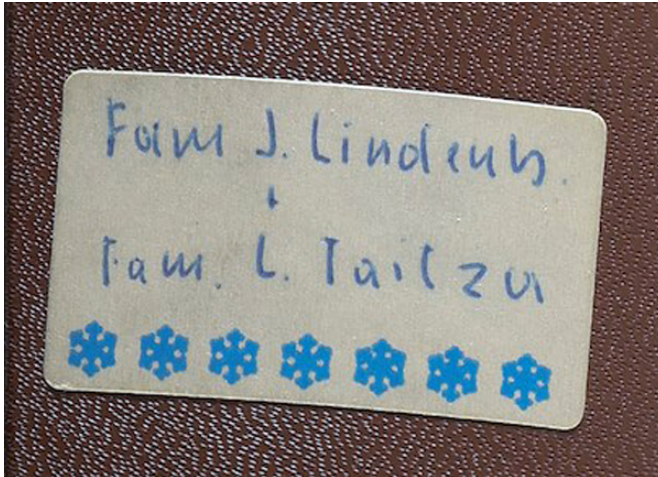 Fam J. Lindenb.
+
Fam. L. Taitzu